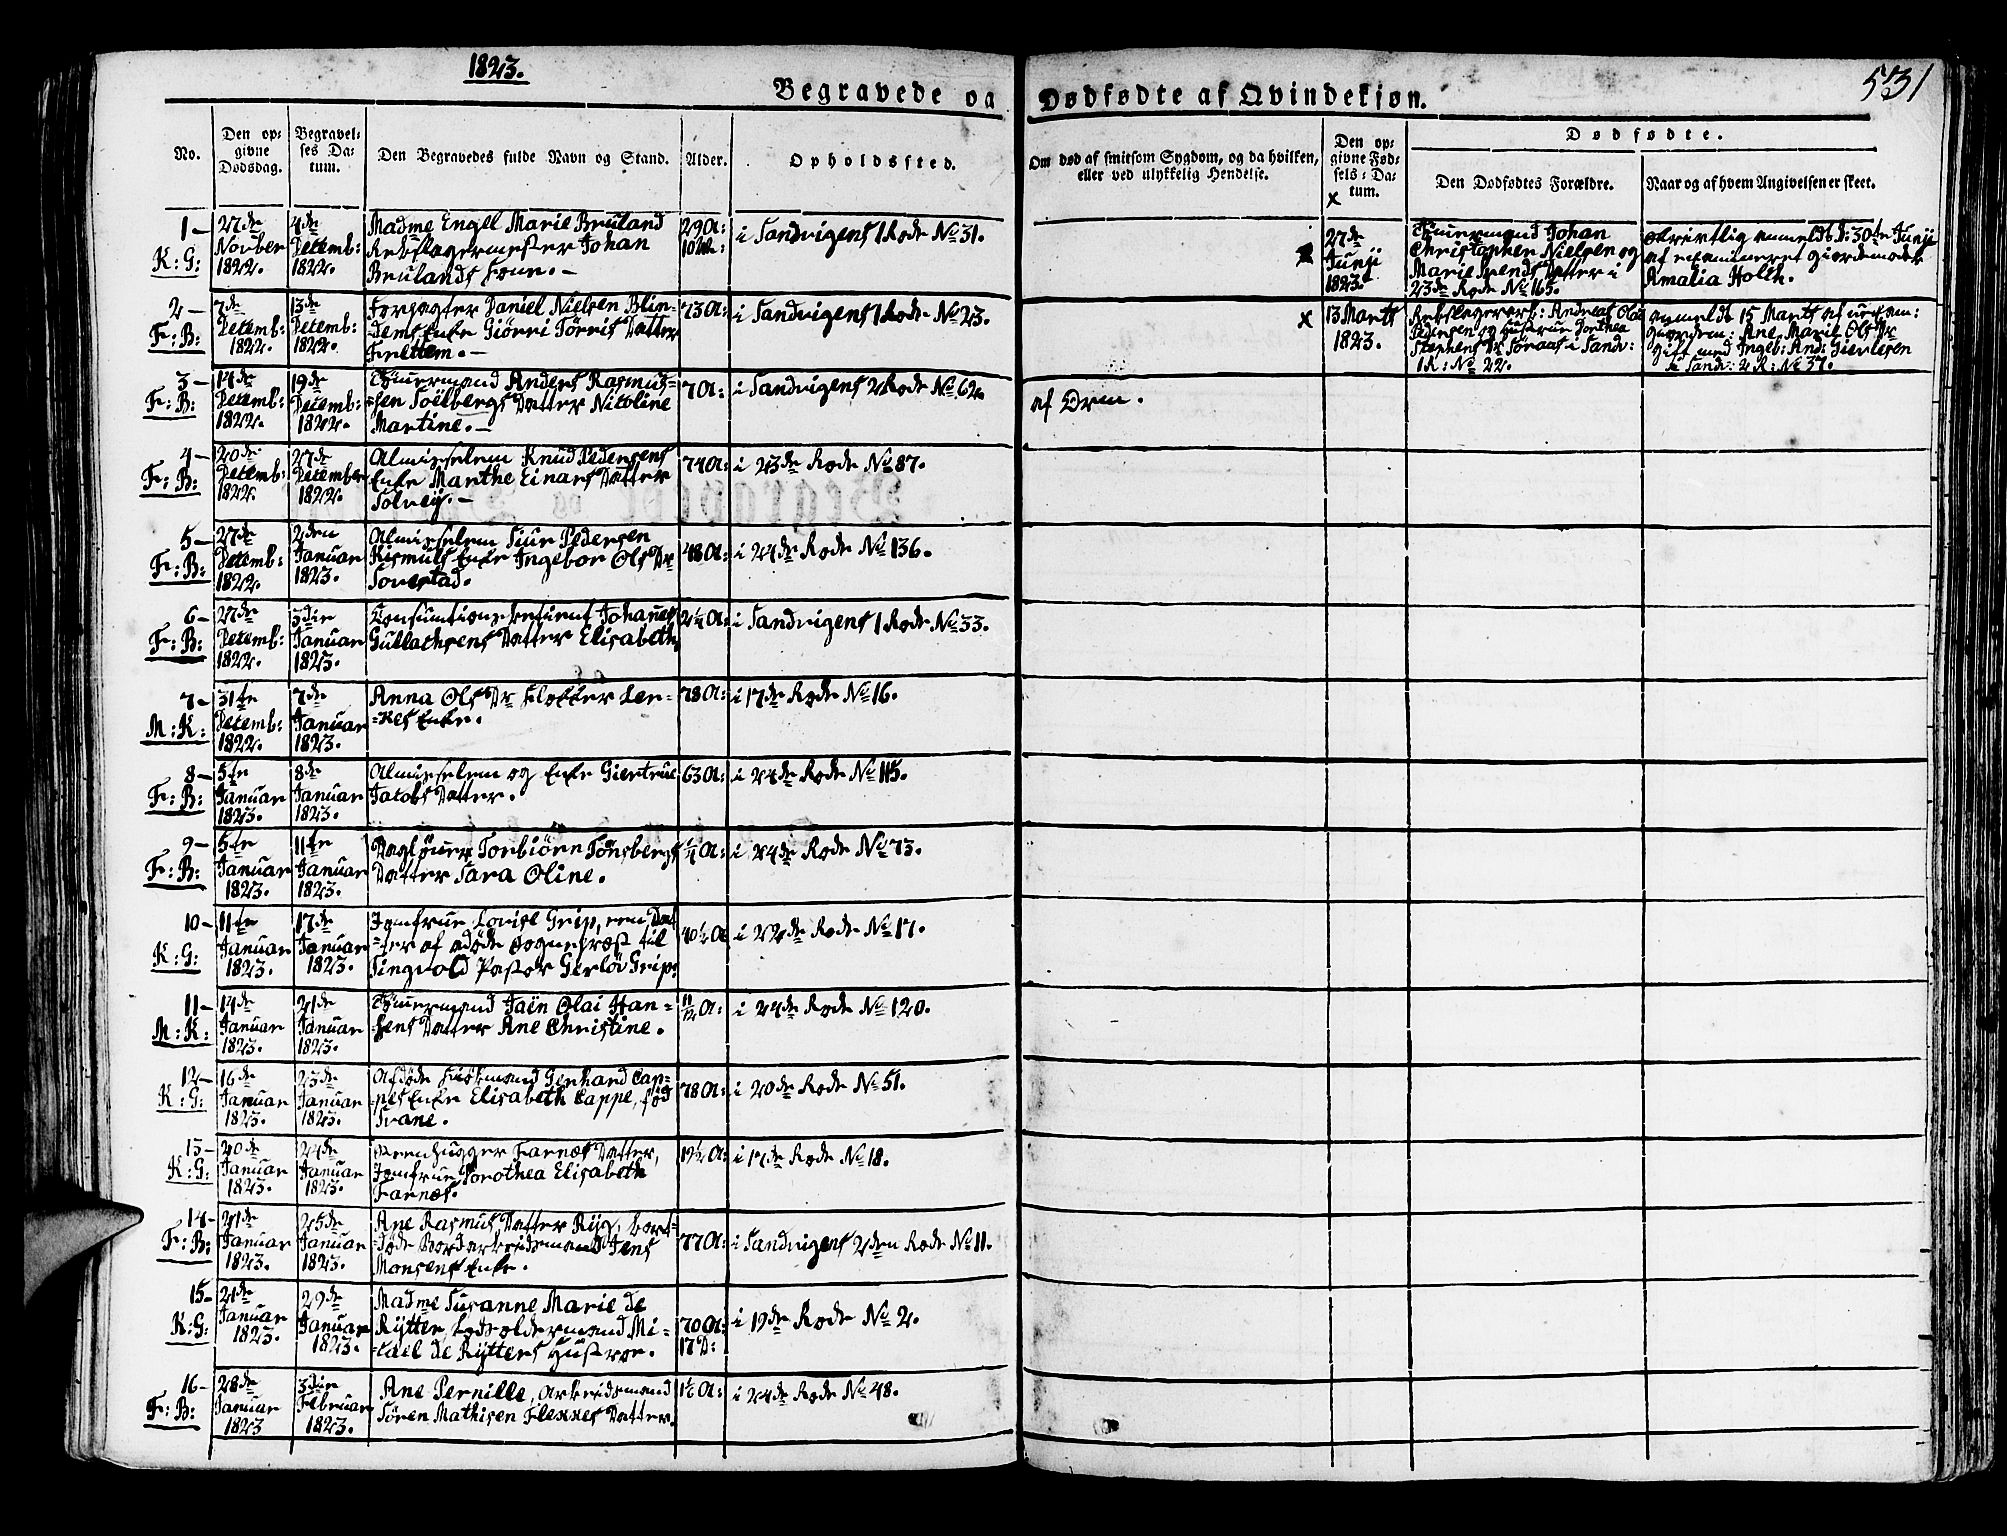 1823.
531
Begravede og Dødfødte af Qvindekjøn.
No.
Den op=
givne
Dødsdag.
Begravel=
ses Da=
tum.
Den Begravedes fulde Navn og Stand.
Alder.
Opholdssted.
Om død af smitsom Sygdom, og da hvilken,
eller ved ulykkelig Hendelse.
Den op=
givne Fød=
sels=Da=
tum.
Dødfødte.
Den Dødfødtes Forældre.
Naar og af hvem Angivelsen er skeet.
1-
K: G:
27de
Novber
1822.
4de
Decemb:
1822.
Madme Engel Marie Bruland
Johan
Brulands
29 A:
i Sandvigens 1 Rode No 31.
x
27de
Junji
1823.
Tømmermand Johan
Christopher Nielsen og
Marie Datter i
23de Rode No 165.
anmeldt d: 30te Junji
af examineret Giordemoder
Amalia Holth.
2-
F: B:
7de
Decemb:
1822.
13de
Decemb:
1822.
Daniel Nielsen Blin=
Enke Giørri Tørris Datter
73 A:
i Sandvigens 1 Rode No 23.
x
13 Marts
1823.
Andreas Olai
og Hustrue Dorthea
Søraas i Sandv:
1 R: No 22.
anmeldt 15 Marts af
Ane Marie Ols Dr
gift med Ingeb:
i Sandv: 2 R: No 37.
3-
F: B:
14de
Decemb:
1822.
19de
Decemb:
1822.
Tømmermand Anders Rasmus=
=sen Soelbergs Datter Nicoline
Martine.-
7 A:
i Sandvigens 2 Rode No 62.
af Orm.
4-
F: B:
20de
Decemb:
1822.
27de
December
1822.
Almisselem Knud Pedersens
Enke Marthe Einars Datter
Solvey.-
74 A:
i 23de Rode No 87.
5-
F: B:
27de
Decemb:
1822.
2den
Januar
1823.
Almisselem Siur Pedersen
Rismuls Enke Ingebor Ols Dr
48 A:
i 24de Rode No 136.
6-
F: B:
27de
Decemb:
1822.
3die
Januar
1823.
Consumtionsbetient Johanes
Gullachsens Datter Elisabeth
2¼ A:
i Sandvigens 1 Rode No 33.
7-
M: K:
31te
Decemb:
1822.
7de
Januar
1823.
Anna Ols Dr
Enke.
78 A:
i 17de Rode No 16.
8-
F: B:
5te
Januar
1823.
8de
Januar
1823.
Almisselem og Enke Giertrue
Jacobs Datter.
63 A:
i 24de Rode No 115.
9-
F: B:
5te
Januar
1823.
11te
Januar
1823.
Dagløner Torbiörn Tönsbergs
Datter Sara Oline.
¼ A:
i 24de Rode No 73.
10-
K: G:
11te
Januar
1823.
17de
Januar
1823.
Jomfrue Lovise Grip, een Dat
=ter af afdøde Sognepræst til
Tingvold Pastor Gerløv Grip.
40½ A
i 22de Rode No 17.
11-
M: K:
14de
Januar
1823.
21de
Januar
1823.
Tømmermand Olai Han=
sens Datter Ane Christine.
11/12 A:
i 24de Rode No 120.
12-
K: G:
16de
Januar
1823.
23de
Januar
1823.
Afdøde Gerhard Cap=
=pes Enke Elisabeth Cappe, fød
Svane.
78 A:
i 20de Rode No 51.
13-
K: G:
20de
Januar
1823.
24de
Januar
1823.
Steenhugger Farnæs Datter,
Jomfrue Dorothea Elisabeth
Farnæs.
19½ A:
i 17de Rode No 18.
14-
F: B:
21de
Januar
1823.
25de
Januar
1823.
Ane Rasmus Datter Ryg, bort=
=døde Jens
Monsens Enke.
77 A:
i Sandvigens 2den Rode No 11.
15-
K: G:
21de
Januar
1823.
29de
Januar
1823.
Madme Susanne Marie de
Rytter, Lodsoldermand Mi=
=cael de Rytters Hustroe.
70 A:
17 D:
i 19de Rode No 2.
16-
F: B:
28de
Januar
1823
3die
Februar
1823.
Ane Pernille, Arbeidsmand
Sören Mathisen Datter.
i 24de Rode No 48.